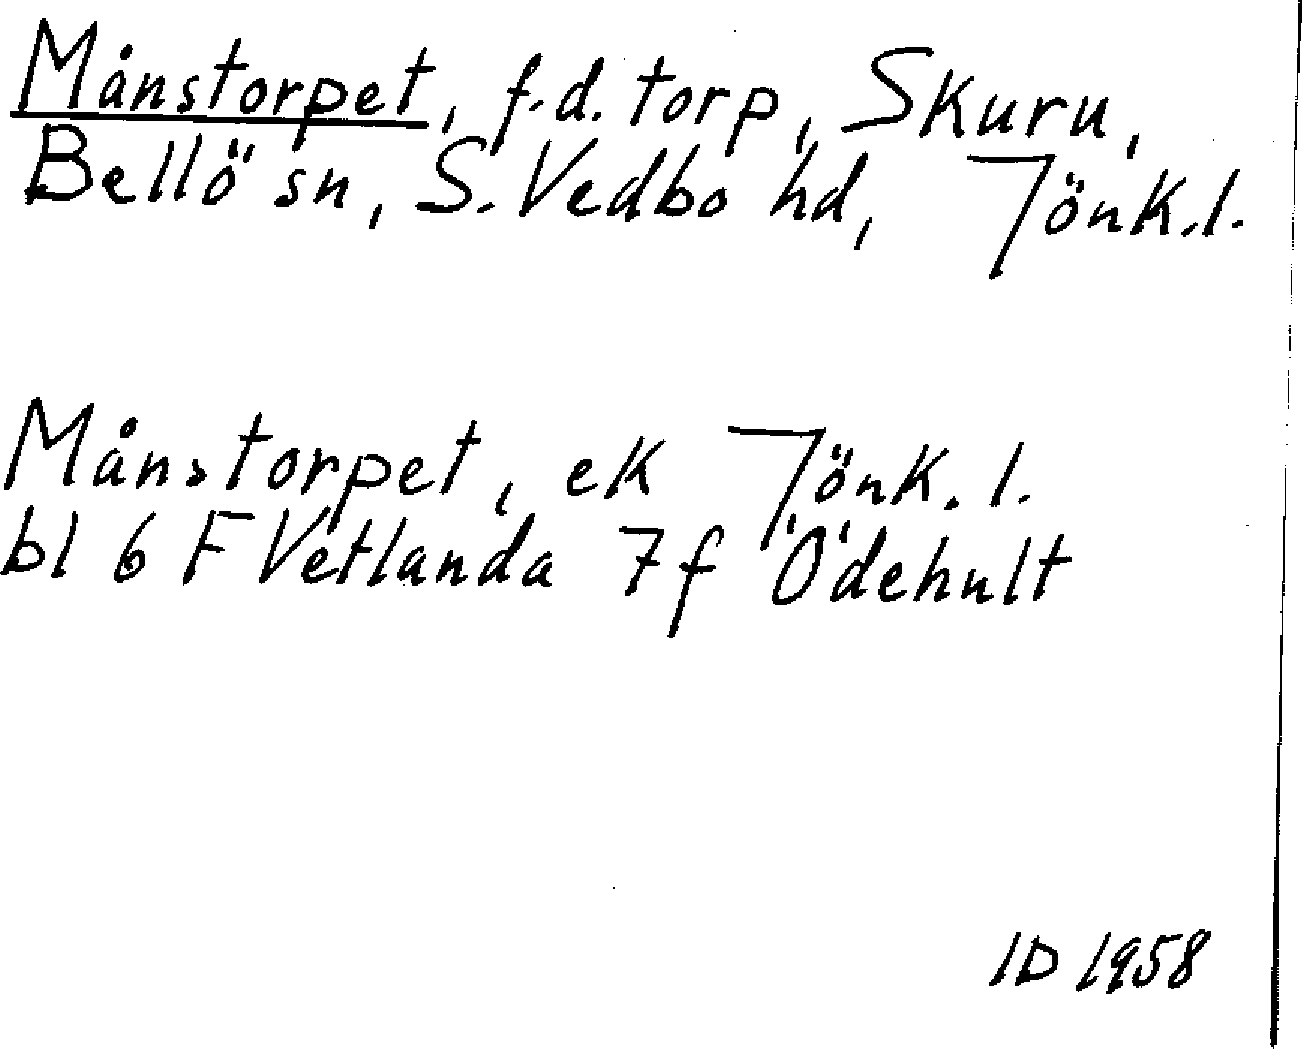 Månstorpet, f.d. torp, Skuru,
Bellö sn, S. Vedbo hd, Jönk.l.
Månstorpet, ek Jönk. l.
bl 6 F Vetlanda 7f Ödehult
ID 1958